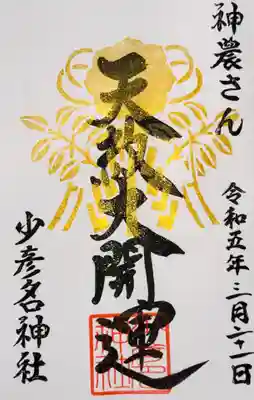 神農さん
令和五年三月二十一日
天赦大開運
少彦名神社